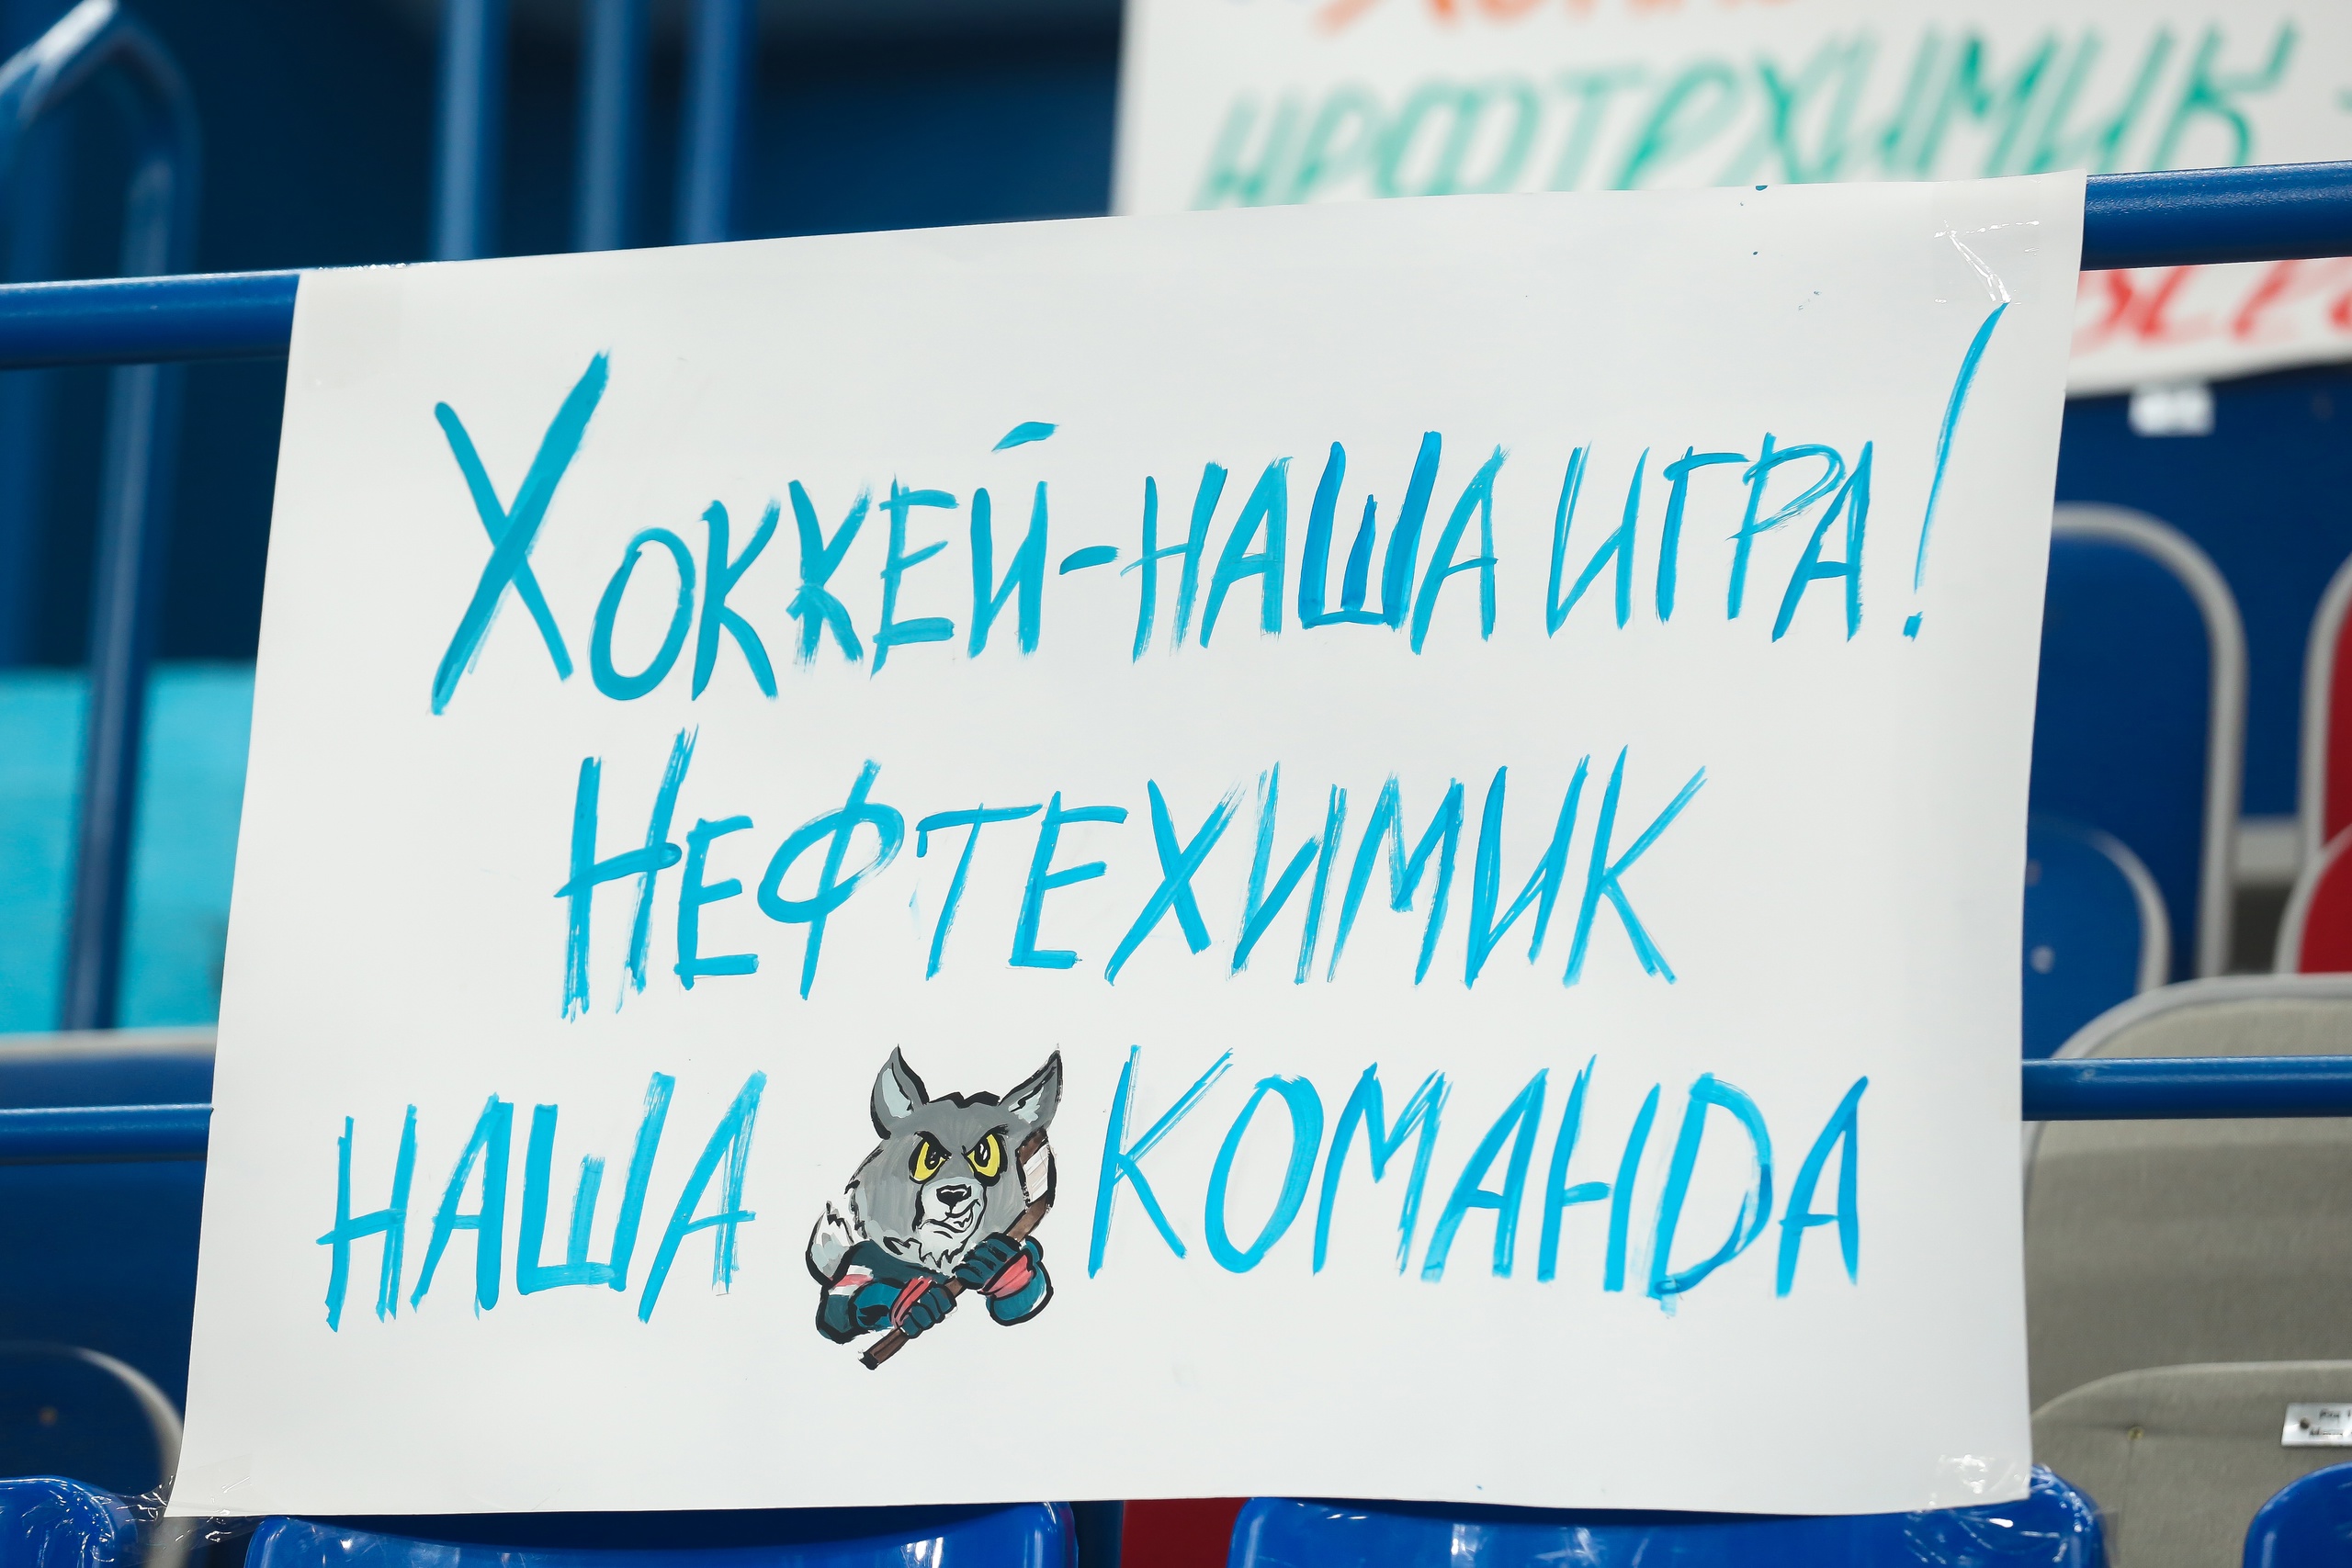 НЕФТЕХИМИК
Хоккей-НАША ИГРА!
НЕФТЕХИМИК
НАША КОМАНDА